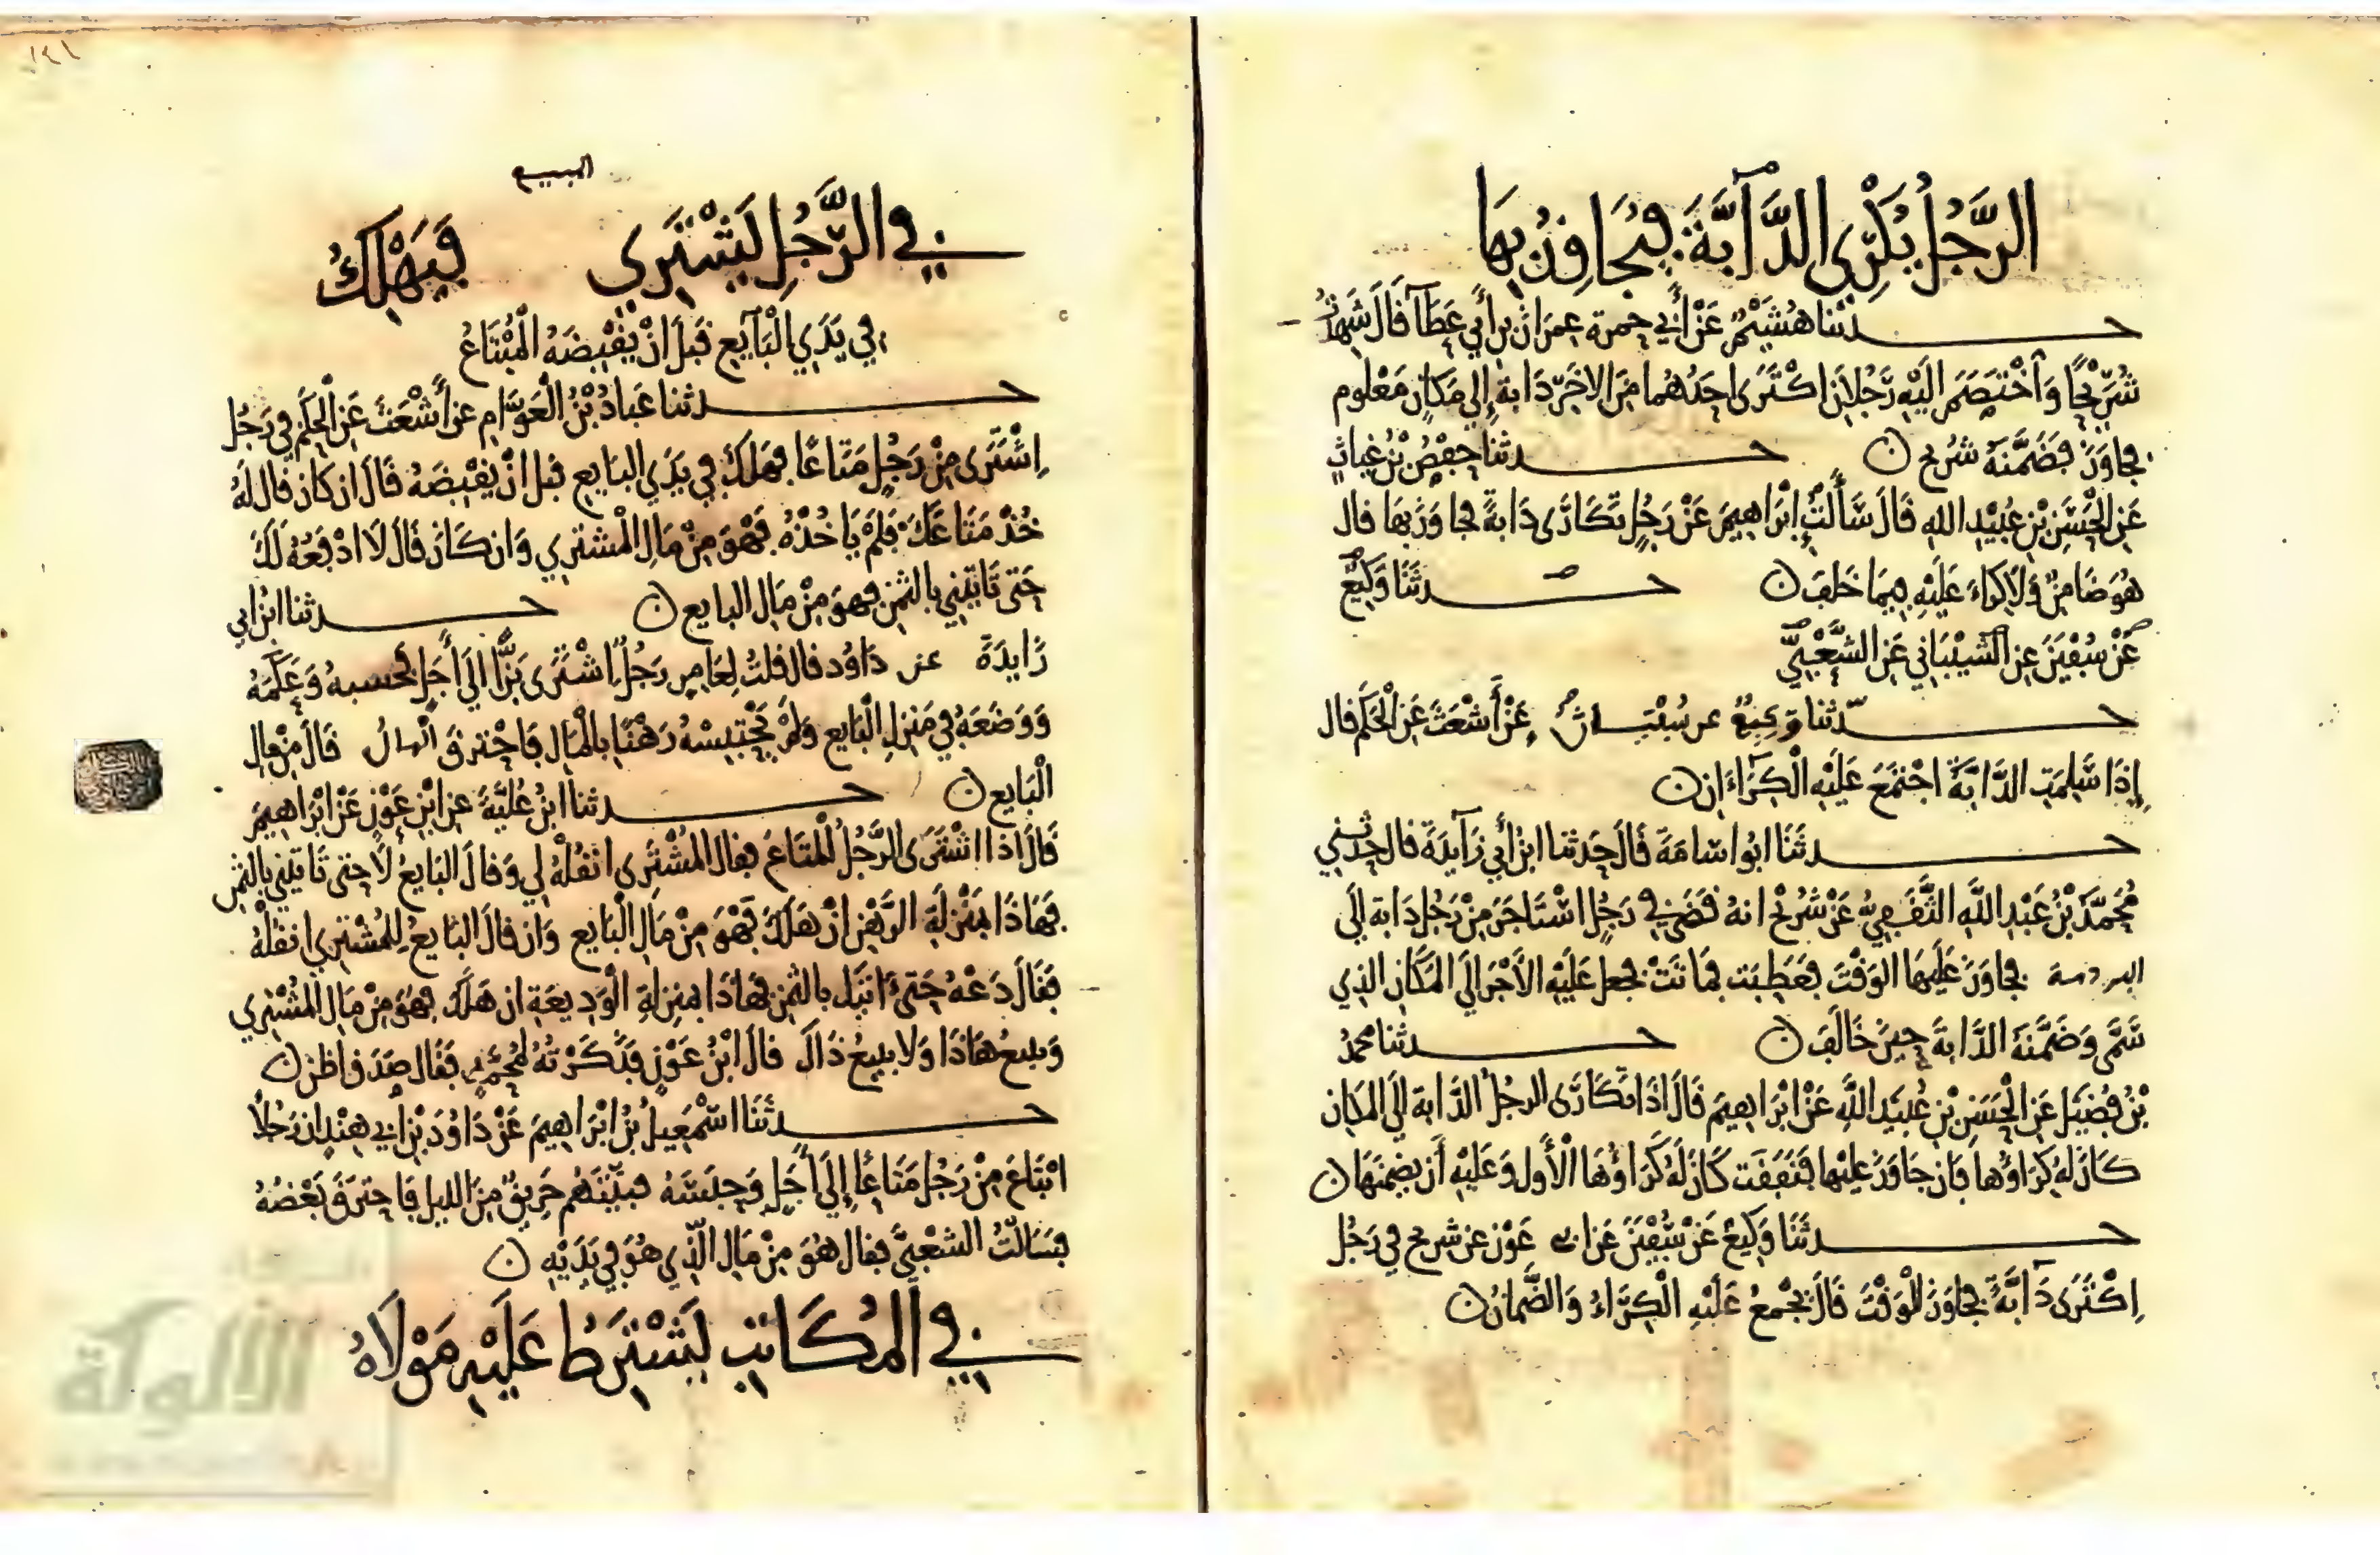 الرَّجُلُ يُكْرِي الدَّآبَّةَ فيُجَاوِزُ بِهَا
حـدثنا هُشَيْمٌ عَنْ أَبِي حمزة عِمرَانَ بن أَبِي عَطَآ قَالَ شَهِدْتُ
شُرَيْحًا وَاخْتَصَمَ الَيْهِ رَجُلَانِ اكْتَرَى احَدُهُمَا مِنَ الاخَرِ دَابةً إلي مَكَانٍ مَعْلوم
فجاوَزَ فَضَمَّنَهُ شريح ن حـدثنا حفْصُ بْنُ غِياثٍ
عَنِ الْحَسَنِ بْنِ عُبَيْدِ اللهِ قَالَ سَأَلْتُ إِبْرَاهِيمَ عَنْ رَجُلٍ تَكَارَى دَابةً فجاوَزَ بِهَا قال
هُوَ ضَامِنٌ وَلَا كِرَاءَ عَلَيْهِ فِيمَا خَلَفَ ن حـدثَنَا وَكِيعٌ
عَنْ سُفْيَنَ عن الشَّيْبَانِي عَنِ الشَّعْبِيِّ
حـدثنا وَكِيعٌ عن سُفْيَـانَ عَنْ أَشْعَثَ عَنِ الْحَكَمِ قال
إِذَا سَلِمَتِ الدَّابَّةُ اجْتَمَعَ عَلَيْهِ الْكِرَاءَانِ ن
حـدثَنَا ابُو اسَامَةَ قَالَ حَدثنا ابنُ أَبِي زَآيِدَةَ قال حدثني
مُحَمَّدُ بْنُ عَبْدِ اللَّهِ الثَّقَفِيُّ عَنْ شُرَيْحٍ انهُ قَضَى فِي رَجُلٍ اسْتَاجَرَ مِنْ رَجُلٍ دَابة إلَى
فجاوَزَ عَلَيهَا الوَقْتَ فَعَطِبَت فمَاتَتْ فجعلَ عَلَيْهِ الأَجْرَ إلَي المَكَانِ الذِي
سَمَّى وَضَمَّنَهُ الدَّابةَ حِينَ خَالَفَ ن حـدثنا محمدُ
بْنُ فُضَيْلٍ عَنِ الْحَسَنِ بْنِ عُبَيْدِ اللَّهِ عَنْ ابْرَاهِيمَ قَالَ اذَا تكَارَى الرجُلُ الدَّابة إلَي المكان
كَانَ لهُ كِرَاؤُها فَإن جَاوَزَ عليْها فَنَفَقَت كَانَ لَهُ كِرَاؤُهَا الْأَول وَعَلَيْهِ أَن يضمنَهَا ن
حـدثَنَا وَكِيعٌ عَنْ سُفْيَنَ عَن ابن عَوْن عن شريح في رَجُل
اكْتَرَى دَآبَّةً فجاوَزَ الْوَقْتَ قَالَ يُجْمعُ عَلَيْهِ الْكِرَاءُ وَالضَّمَانُ ن
١٤١
المبيع
في الرَّجُلِ يَشْتَرِي فَيَهْلَكُ
في يَدَيِ الْبَآيِعِ قَبْلَ انْ يَقْبِضَهُ الْمُبْتَاعُ
حـدثنا عَبادُ بْنُ الْعَوَّامِ عن أَشْعَثَ عَنِ الْحَكَمِ فِي رَجُلٍ
اِشْتَرَى مِنْ رَجُلٍ مَتَاعًا فهَلَكَ فِي يَدَيِ البَايعِ قبل انْ يَقْبِضَهُ قَالَ ان كَانَ قال لَهُ
خُذْ مَتَاعَكَ فَلَمْ يَاخُذْهُ فَهْوَ مِنْ مَالِ الْمشتَرِي وَان كَانَ قَالَ لَا ادْفَعُهُ لَكَ
حَتى تَاتِيَنِي بالثمَنِ فهوَ مِنْ مَالِ البايع ن حـدثنا ابْنُ ابي
زَايدَةَ عن دَاوُد قال قلتُ لِعَامِرٍ رَجُلٌ اشْتَرَى بَزًّا إلَي أَجَلٍ فحسبهُ وَعَكَمَهُ
وَوَضَعَهُ فِي مَنزلِ الْبَايعِ وَلَمْ يَحْتَبِسْهُ رَهْنًا بالْمَالِ فَاحْتَرقَ قَالَ مِنْ مال
الْبَايع ن حـدثنا ابْنُ عُلَيَّةَ عن ابْنِ عَوْنٍ عَنْ ابْرَاهِيمَ
قَالَ اذَا اشْتَرَى الرَّجُلُ الْمَتَاعَ فقال المُشْتَرِي انْقُلْهُ لِي وَقالَ البَايعُ لَا حتى تَاتِيَنِي بالثمن
فهَاذَا بمَنْزِلَةِ الرَّهْنِ انْ هَلَكَ فَهْوَ مِنْ مَالِ الْبَايعِ وَان قالَ البَايعُ لِلْمُشْتَرِي انْقُلْهُ
فَقَالَ دَعْهُ حَتى اتيَك بالثمن فهَاذَا بمنزلةِ الْوَدِيعَةِ ان هَلَكَ فهْوَ مِنْ مَالِ الْمُشْتَرِي
وَيبيعُ هَاذَا وَلا يبيعُ ذَاكَ قال ابْنُ عَوْنٍ فَذَكَرْتُهُ لِمُحَمَّدٍ فَقَال صَدَقَ اظن ن
حـدثَنَا اسْمَعِيلُ بْنُ ابْرَاهِيمَ عَنْ دَاوُدَ بْنِ ابي هِنْدٍ ان رَجُلًا
ابْتَاعَ مِنْ رَجُلٍ مَتَاعًا إلَي أَجَلٍ وَحَبَسَهُ فبَيَّتَهُم حَرِيقٌ مِنَ الليل فَاحتَرَقَ بَعْضُهُ
فسَالْتُ الشعْبِيَّ فقال هُوَ مِنْ مَالِ الَّذِي هُوَ فِي يَدَيْهِ ن
في الْمُكَاتَبِ يَشْتَرِطُ عَلَيْهِ مَوْلَاهُ
الألوكة